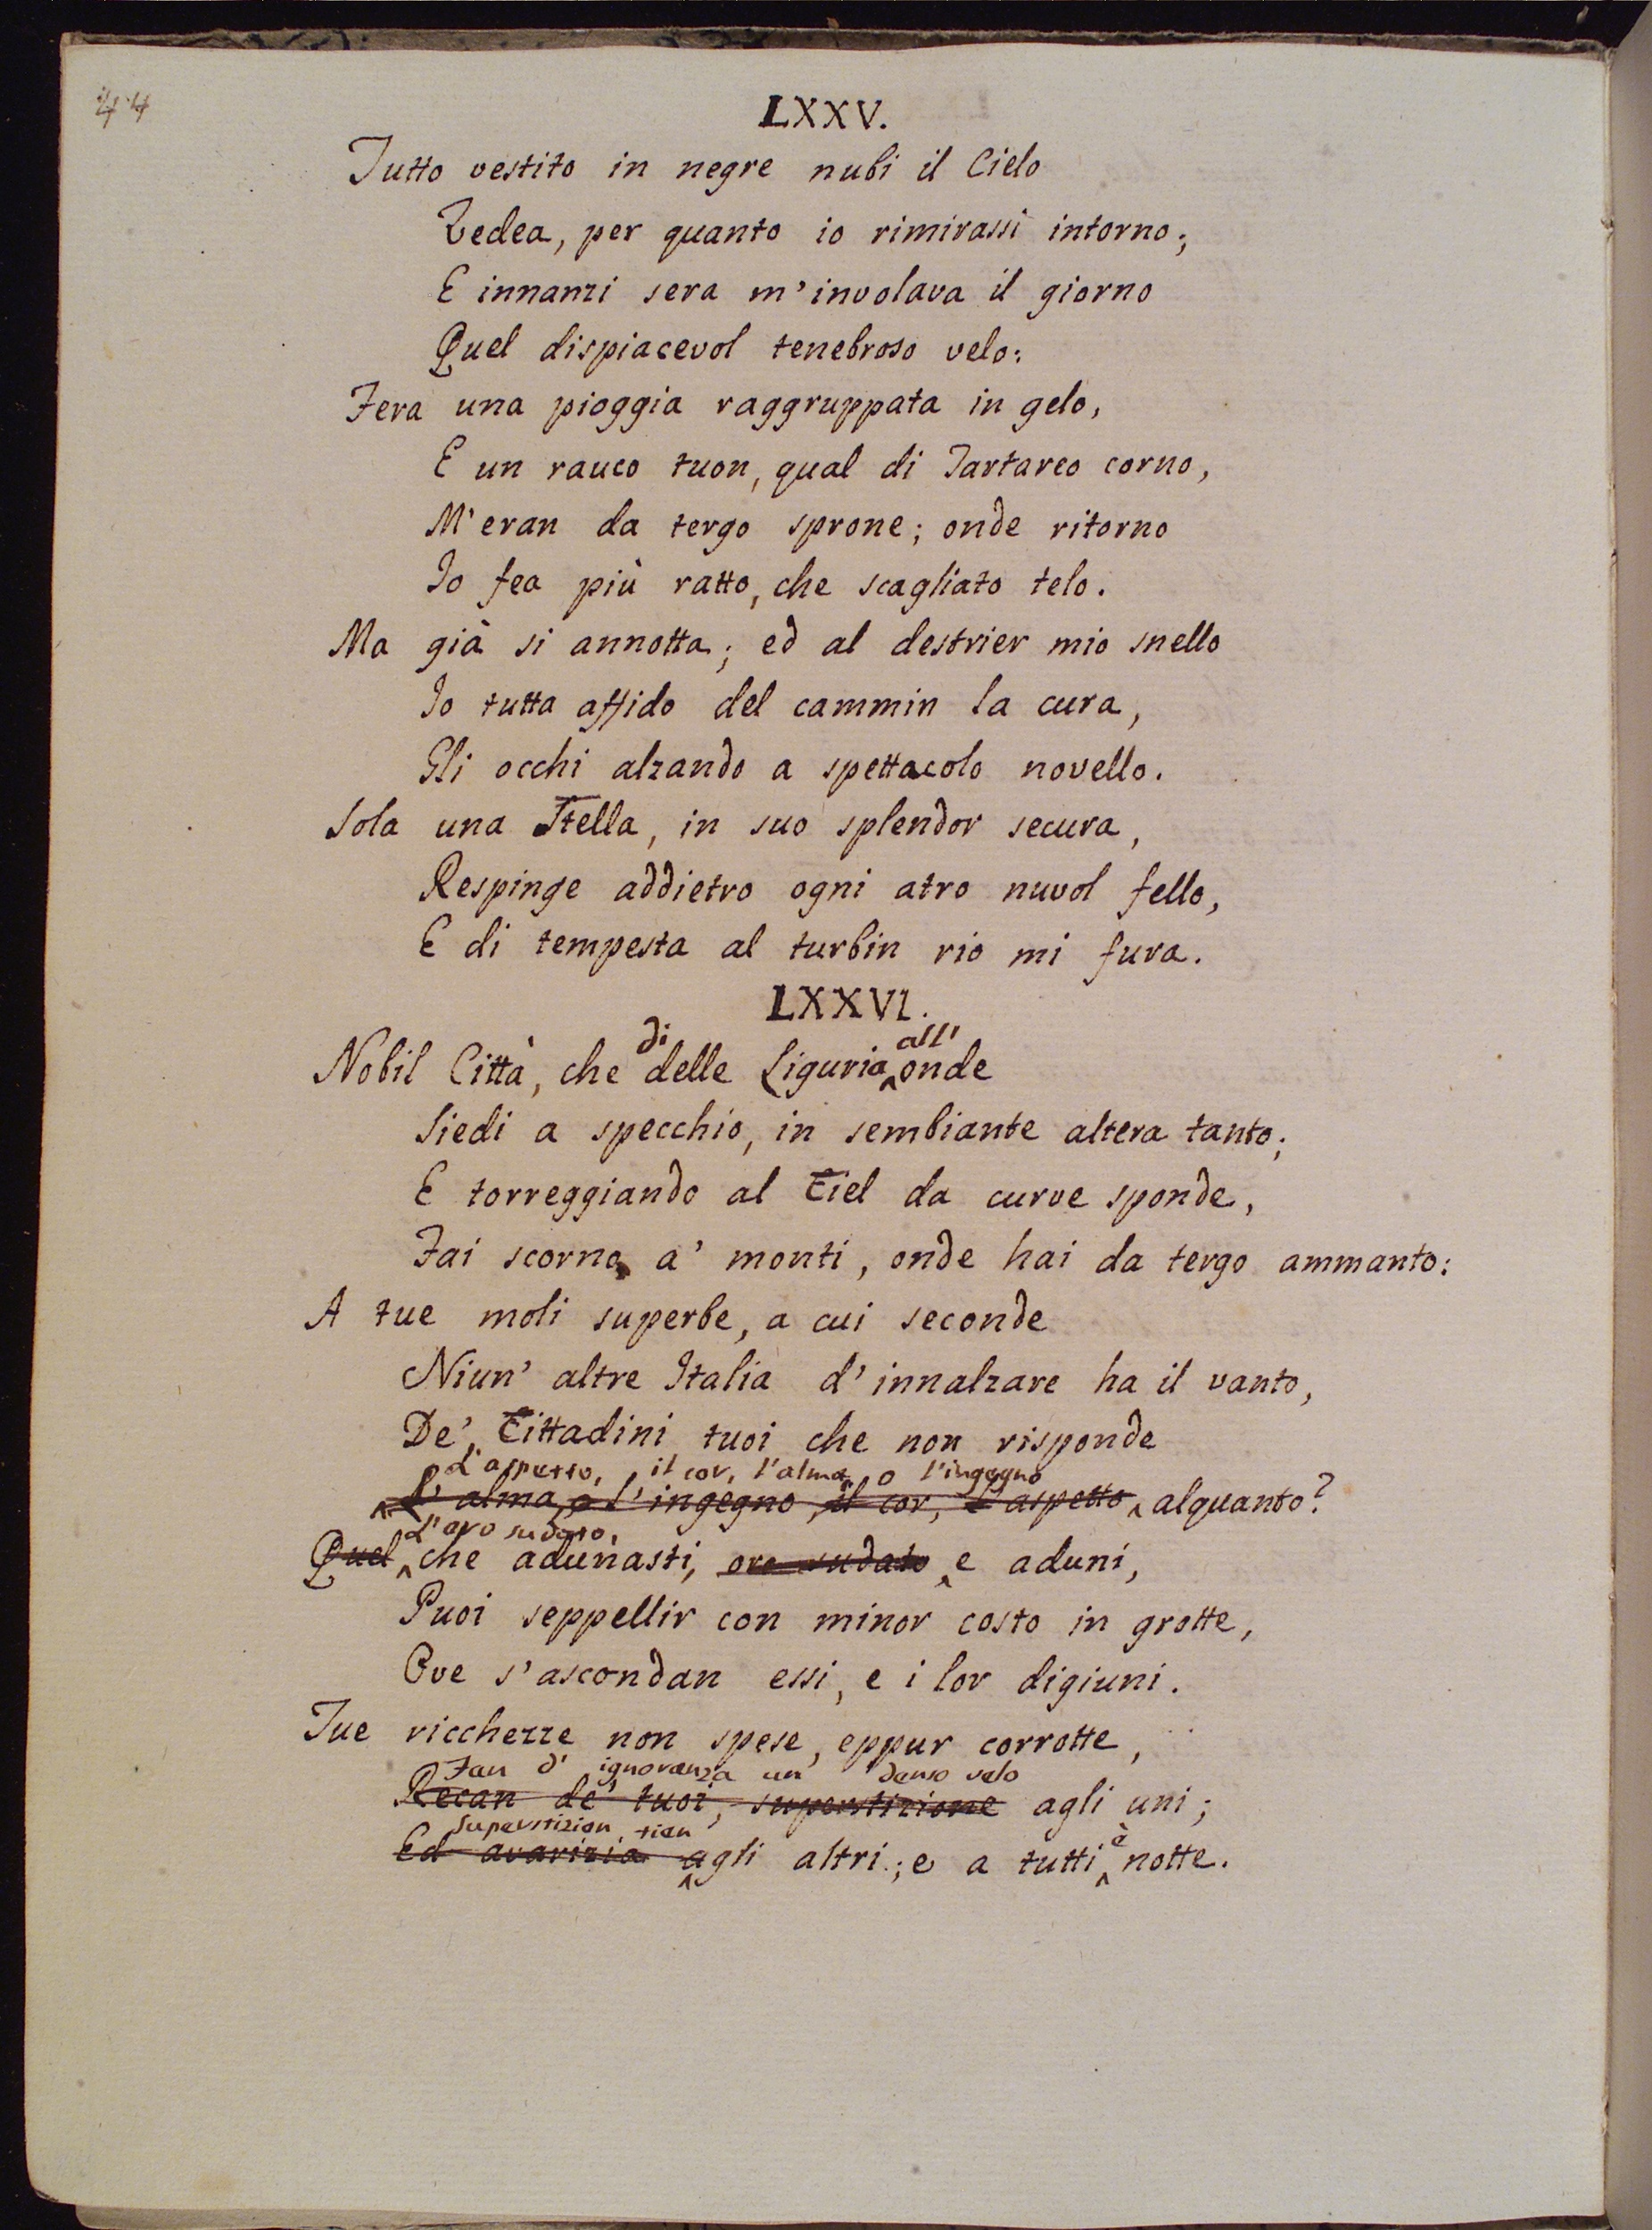 44
LXXV.
Tutto vestito in negre nubi il Cielo
Vedea, per quanto io rimirassi intorno;
E innanzi sera m'involava il giorno
Quel dispiacevol tenebroso velo:
Fera una pioggia raggruppata in gelo,
E un rauco tuon, qual di Tartareo corno,
M'eran da tergo sprone; onde ritorno
Io fea più ratto, che scagliato telo.
Ma già si annotta; ed al destrier mio snello
Io tutta affido del cammin la cura,
Gli occhi alzando a spettacolo novello.
Sola una Stella, in suo splendor secura,
Respinge addietro ogni atro nuvol fello,
E di tempesta al turbin rio mi fura.
LXXVI.
di all'
Nobil Città, che delle Liguria onde
Siedi a specchio, in sembiante altera tanto;
E torreggiando al Ciel da curve sponde,
Fai scorno a' monti, onde hai da tergo ammanto:
A tue moli superbe, a cui seconde
Niun' altre Italia d'innalzare ha il vanto,
De' Cittadini tuoi che non risponde
L'aspetto, il cor, l'alma, o l'ingegno
L'alma, o l'ingegno, il cor, l'aspetto alquanto?
L'oro sudato,
Quel che adunasti, oro sudato e aduni,
Puoi seppellir con minor costo in grotte,
Ove s'ascondan essi, e i lor digiuni.
Tue ricchezze non spese, eppur corrotte,
Fan d'ignoranza un denso velo
Recan de' tuoi, superstizione agli uni;
Superstizion tien è
Ed avarizia agli altri; e a tutti notte.